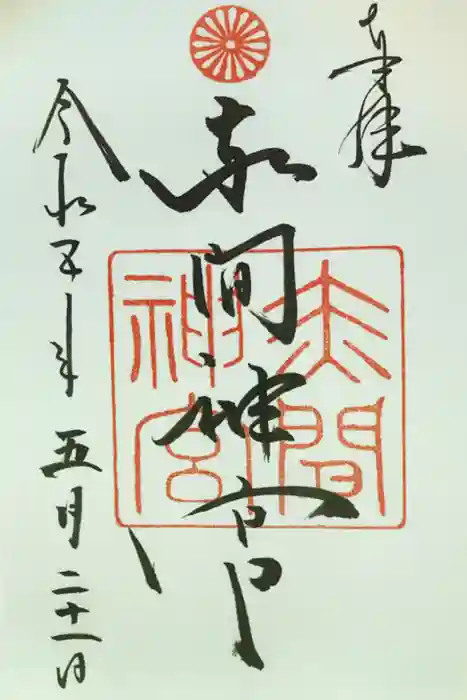 奉拝
赤間神宮
赤間神宮
令和五年五月二十一日